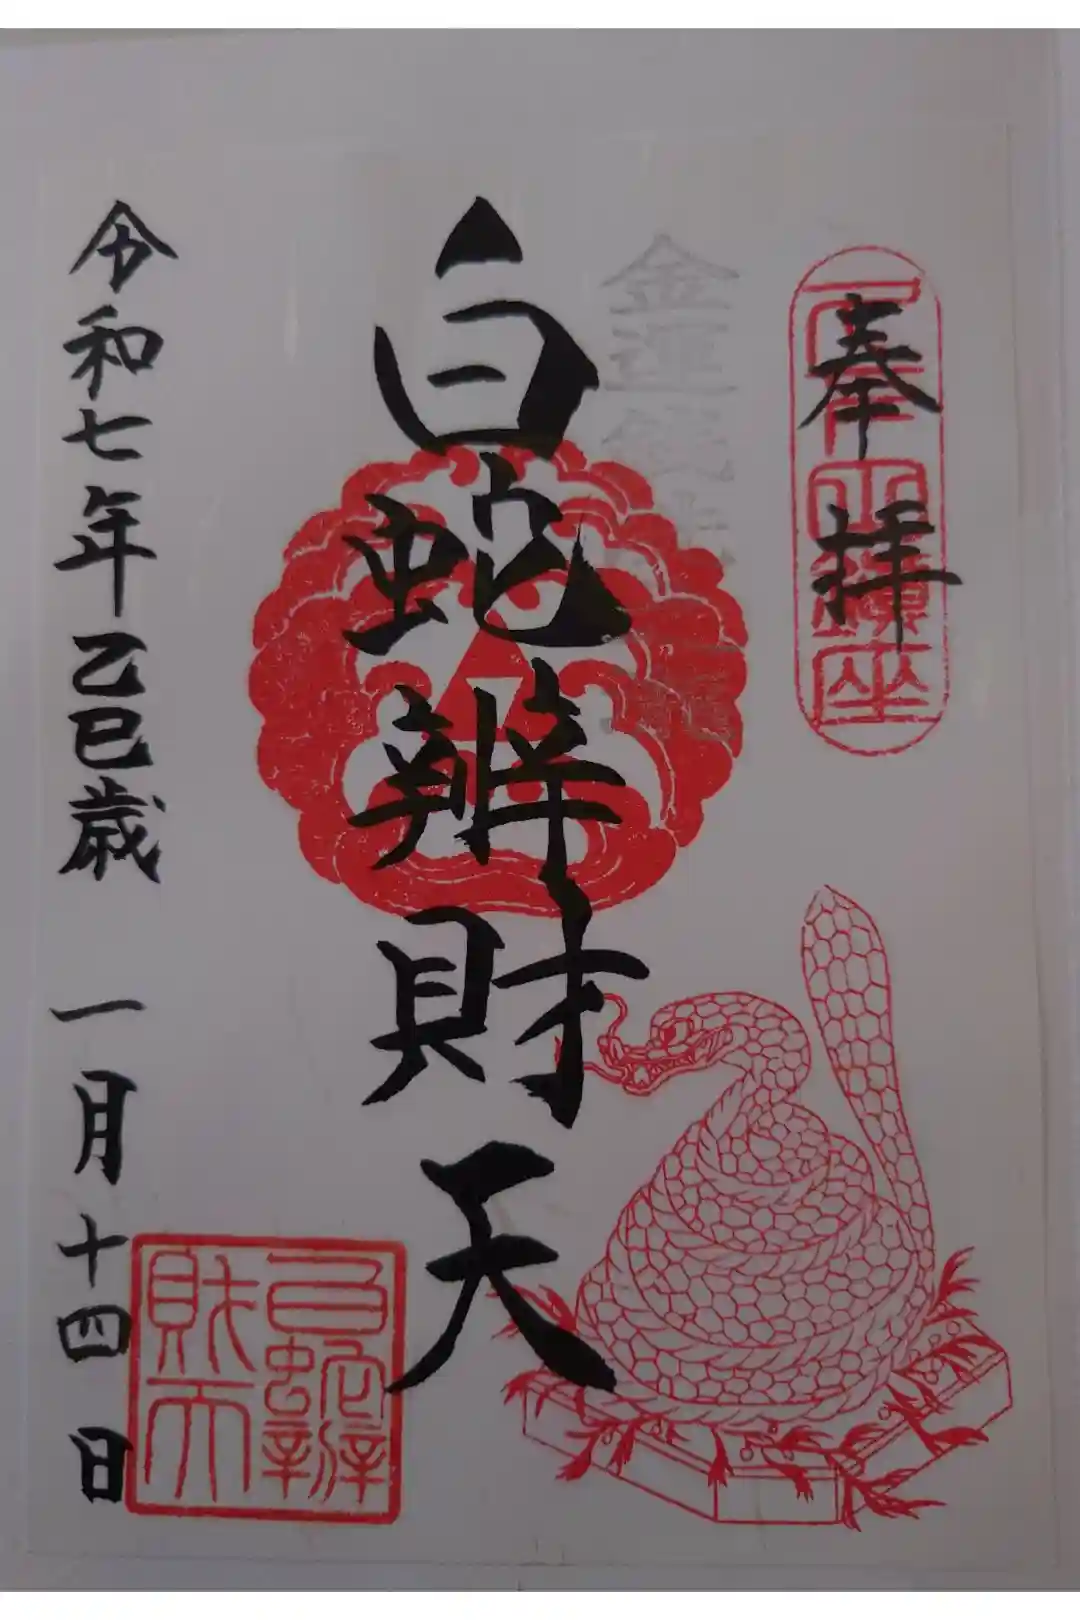 奉拝
白蛇辨財天
令和七年乙巳歳 一月十四日
白蛇辨
財天